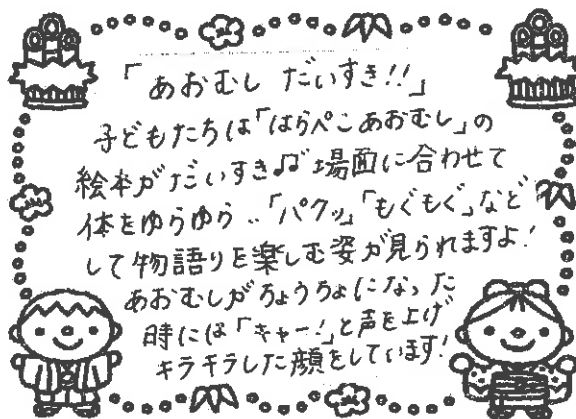 「あおむし だいすき!!」
子どもたちは「はらぺこあおむし」の
絵本がだいすき♫ 場面に合わせて
体をゆらゆら..「パクッ」「もぐもぐ」など
して物語りを楽しむ姿が見られますよ!
あおむしがちょうちょになった
時には「キャー!」と声を上げ
キラキラした顔をしています!